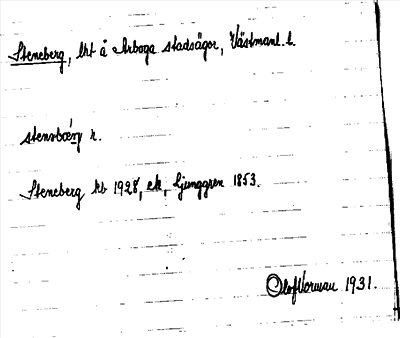 Steneberg, lht å Arboga stadsägor, Västmanl. l.
stensbærj r.
Steneberg kb 1928, ek, Ljunggren 1853.
Olof Vorman 1931.